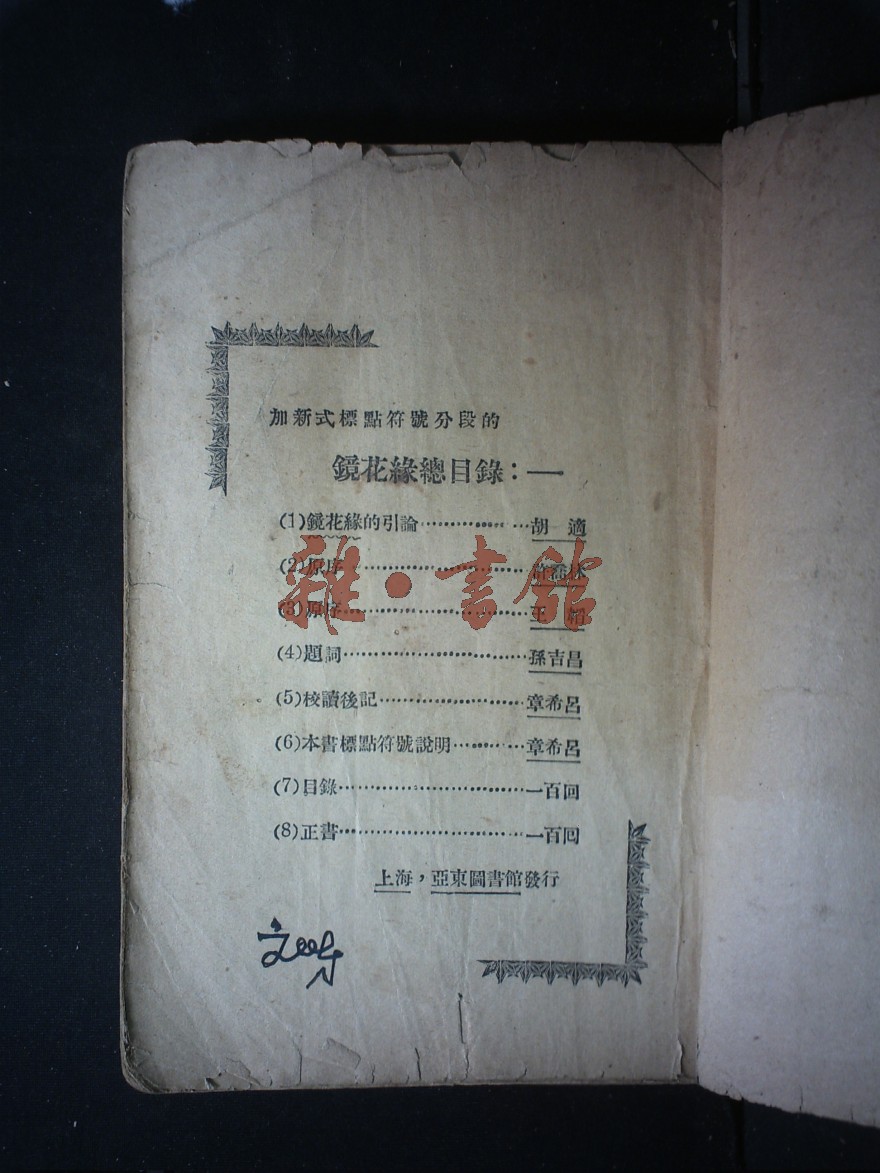 加新式標點符號分段的
鏡花緣總目錄：—
(1)鏡花緣的引論……………胡適
(2)原序……………………許喬林
(3)原序……………………
(4)題詞……………………孫吉昌
(5)校讀後記………………章希呂
(6)本書標點符號說明………章希呂
(7)目錄……………………一百回
(8)正書……………………一百回
上海，亞東圖書館發行
雜·書館